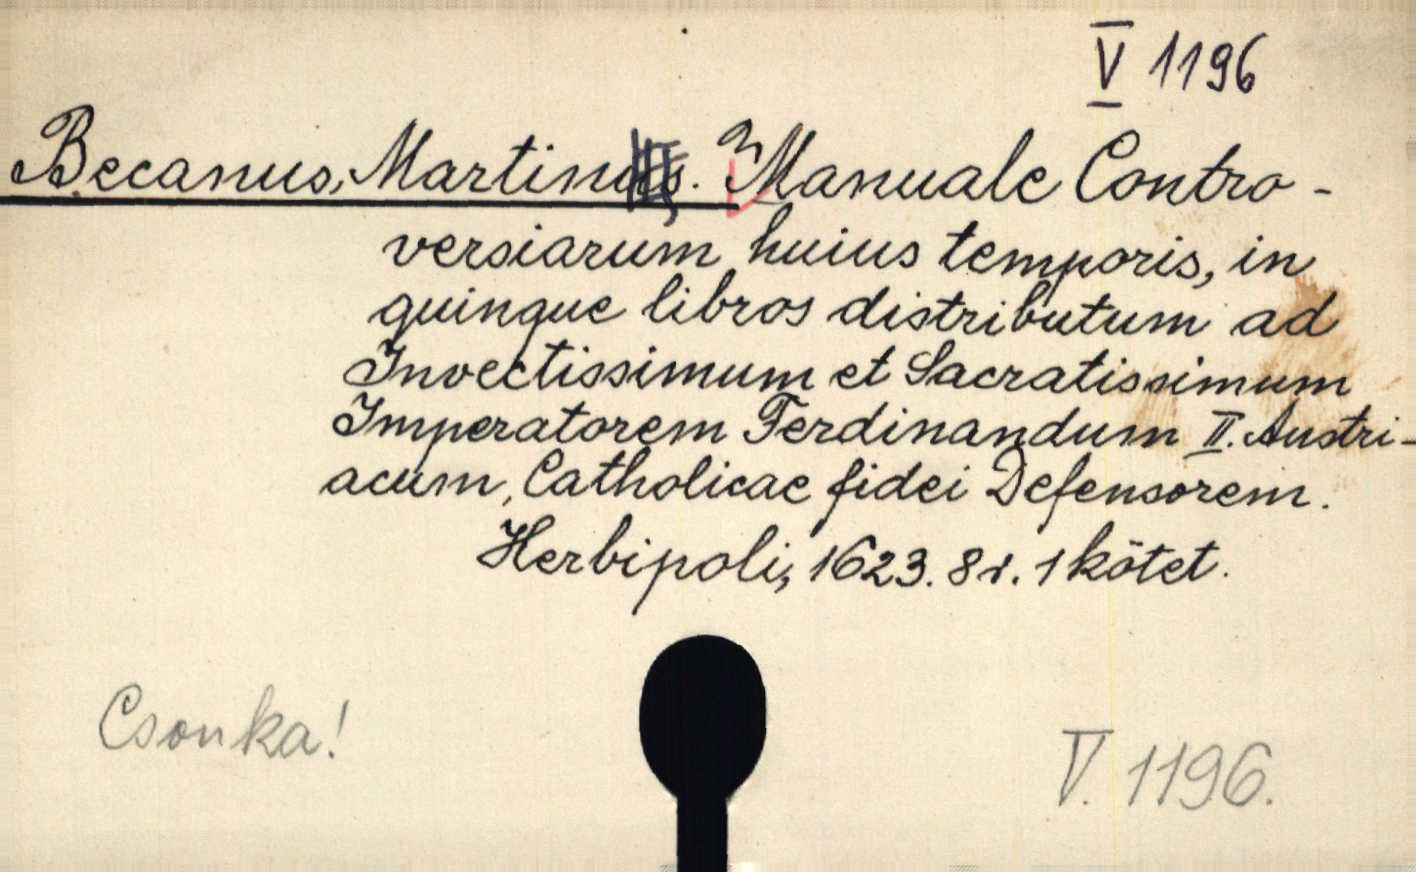 V 1196
Becanus, Martinus. Manuale Contro-
versiarum huius temporis, in
quinque libros distributum ad
Invectissimum et Sacratissimum
Imperatorem Ferdinandum II. Austri-
acum, Catholicae fidei Defensorem.
Herbipoli, 1623. 8r. 1 kötet.
Csonka!
V. 1196.